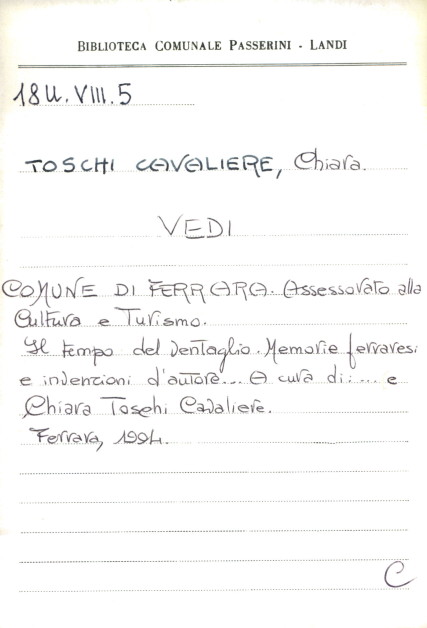 BIBLIOTECA COMUNALE PASSERINI - LANDI
18U.VIII.5
TOSCHI CAVALIERE, Chiara.
VEDI
COMUNE DI FERRARA. Assessorato alla
Cultura e Turismo.
Il tempo del ventaglio. Memorie ferraresi
e invenzioni d'autore... A cura di:... e
Chiara Toschi Cavaliere.
Ferrara, 1994.
C